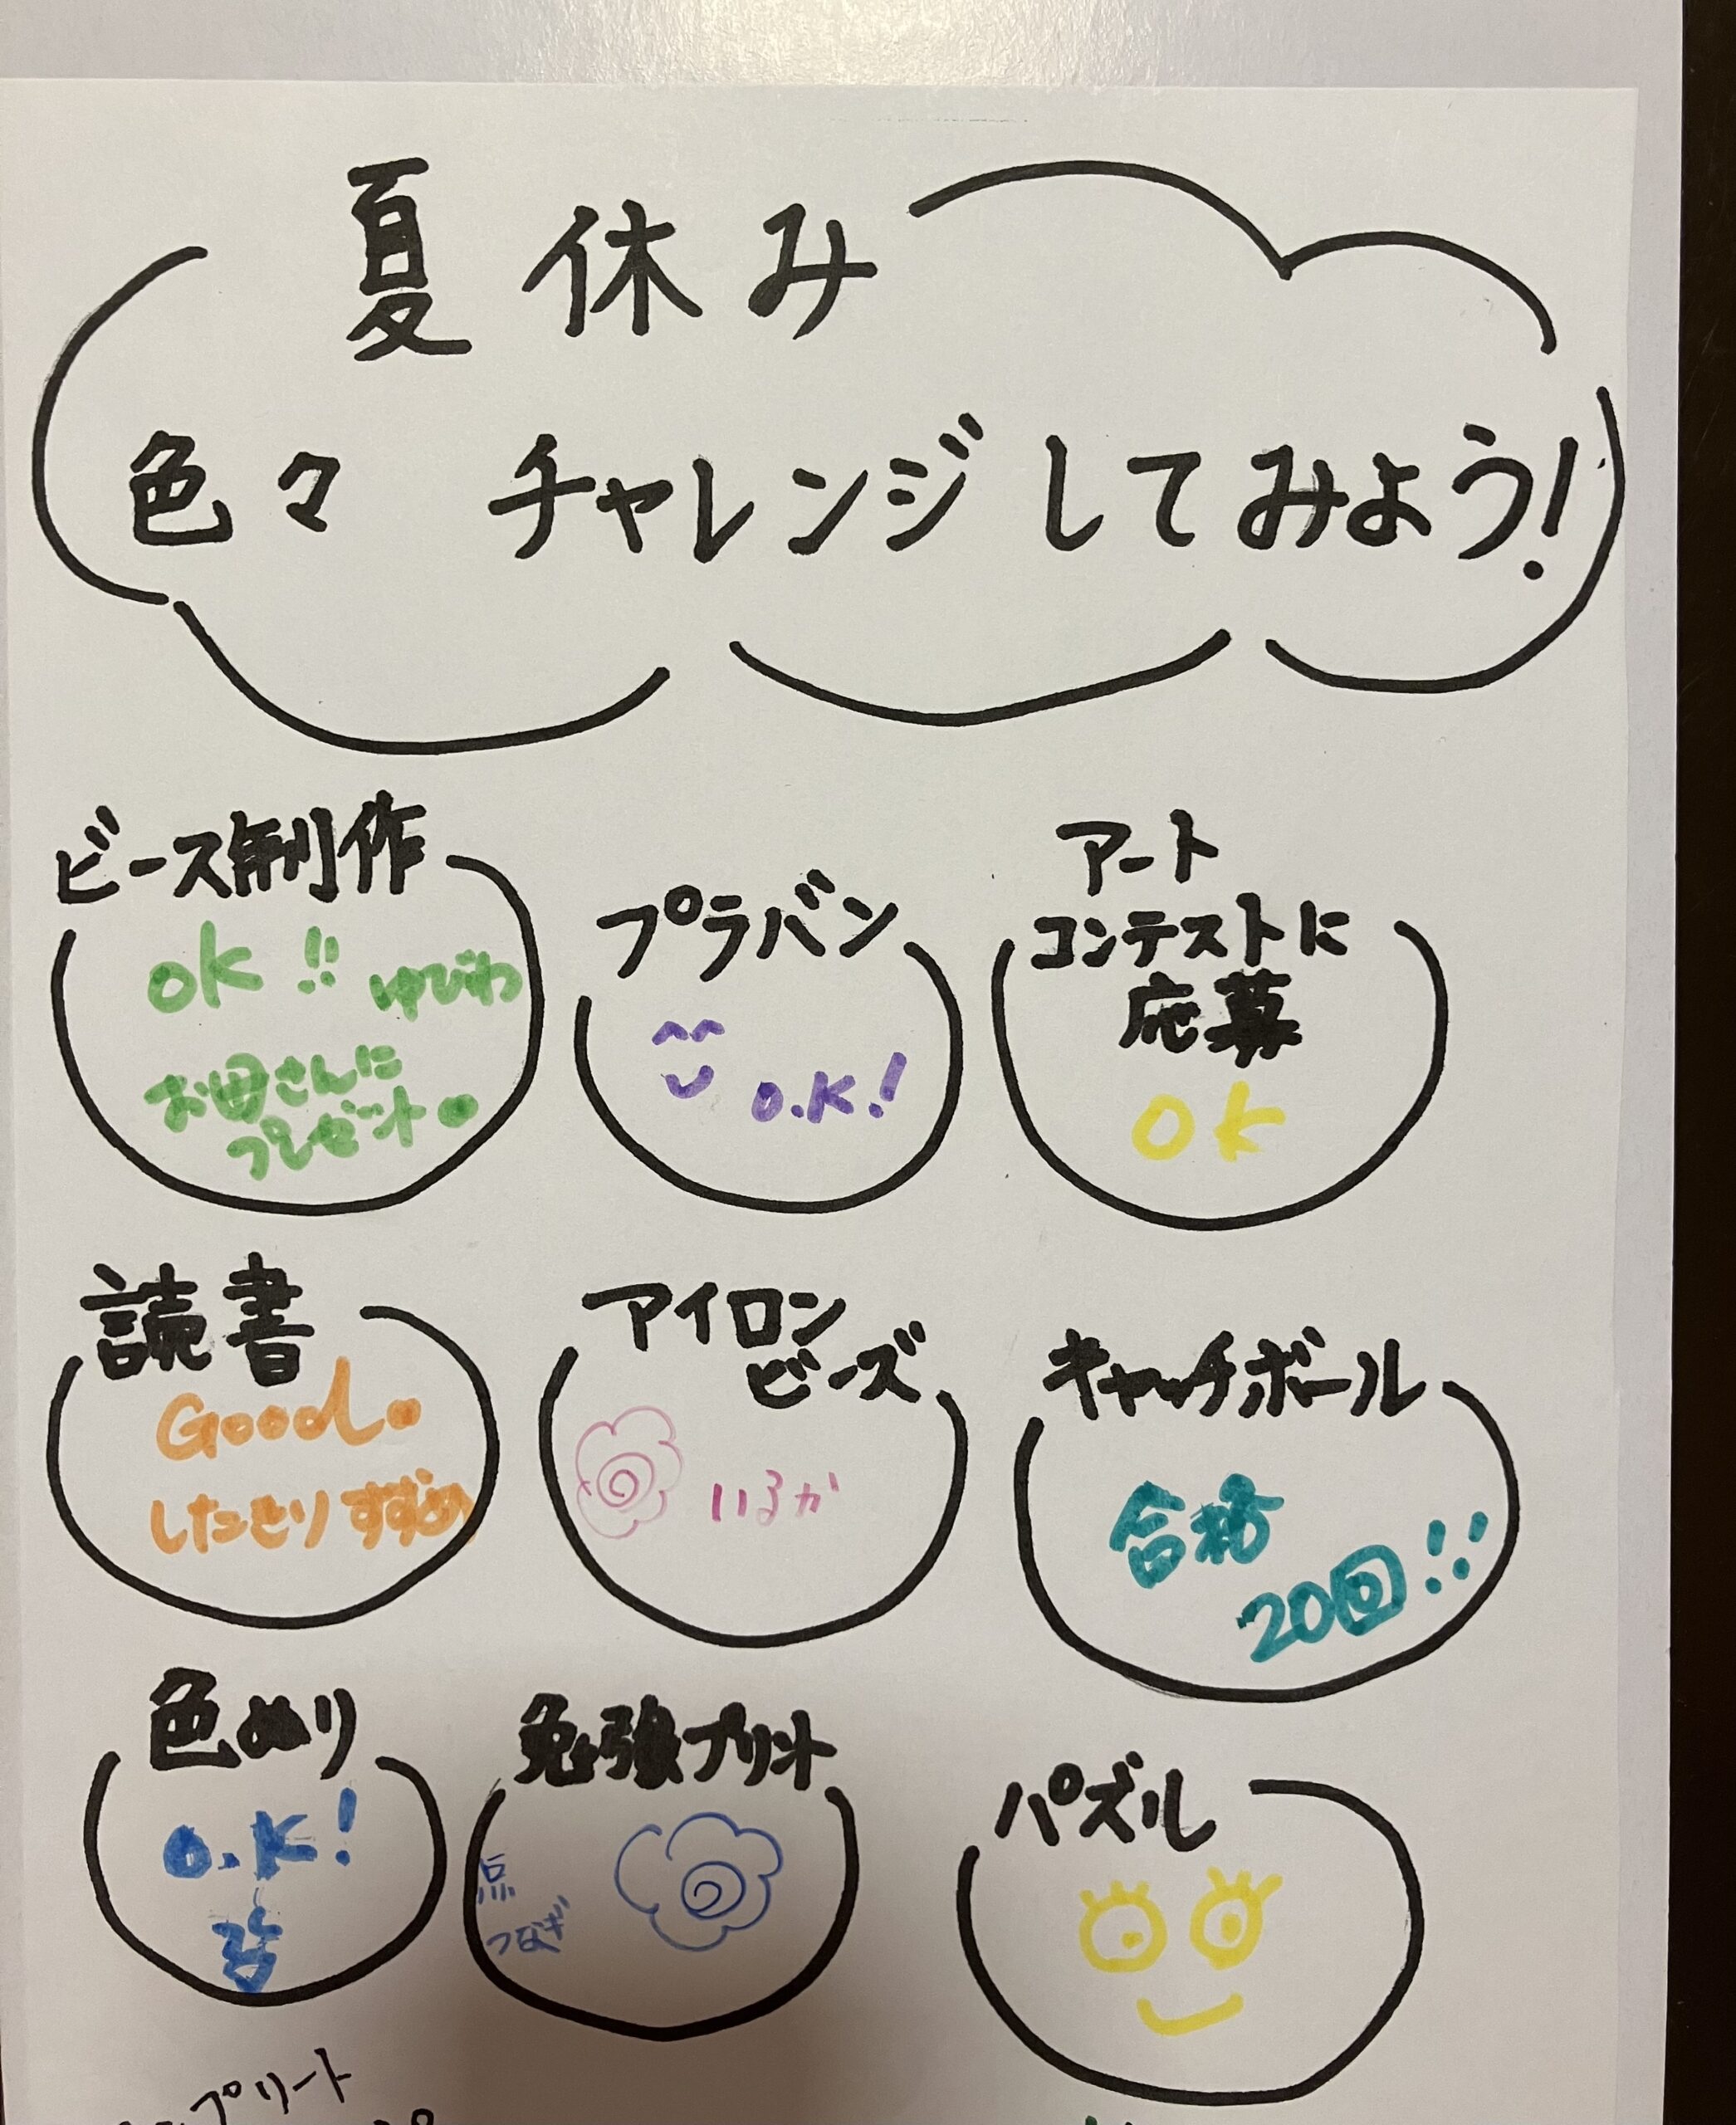 夏休み
色々 チャレンジしてみよう!
ビース制作
OK!! ゆびわ
お母さんに
プレゼント
プラバン
O.K!
アート
コンテストに
応募
OK
読書
Good
したきりすずめ
アイロン
ビーズ
いるか
キャッチボール
合格
20回!!
色ぬり
O.K!
勉強プリント
点
つなぎ
パズル